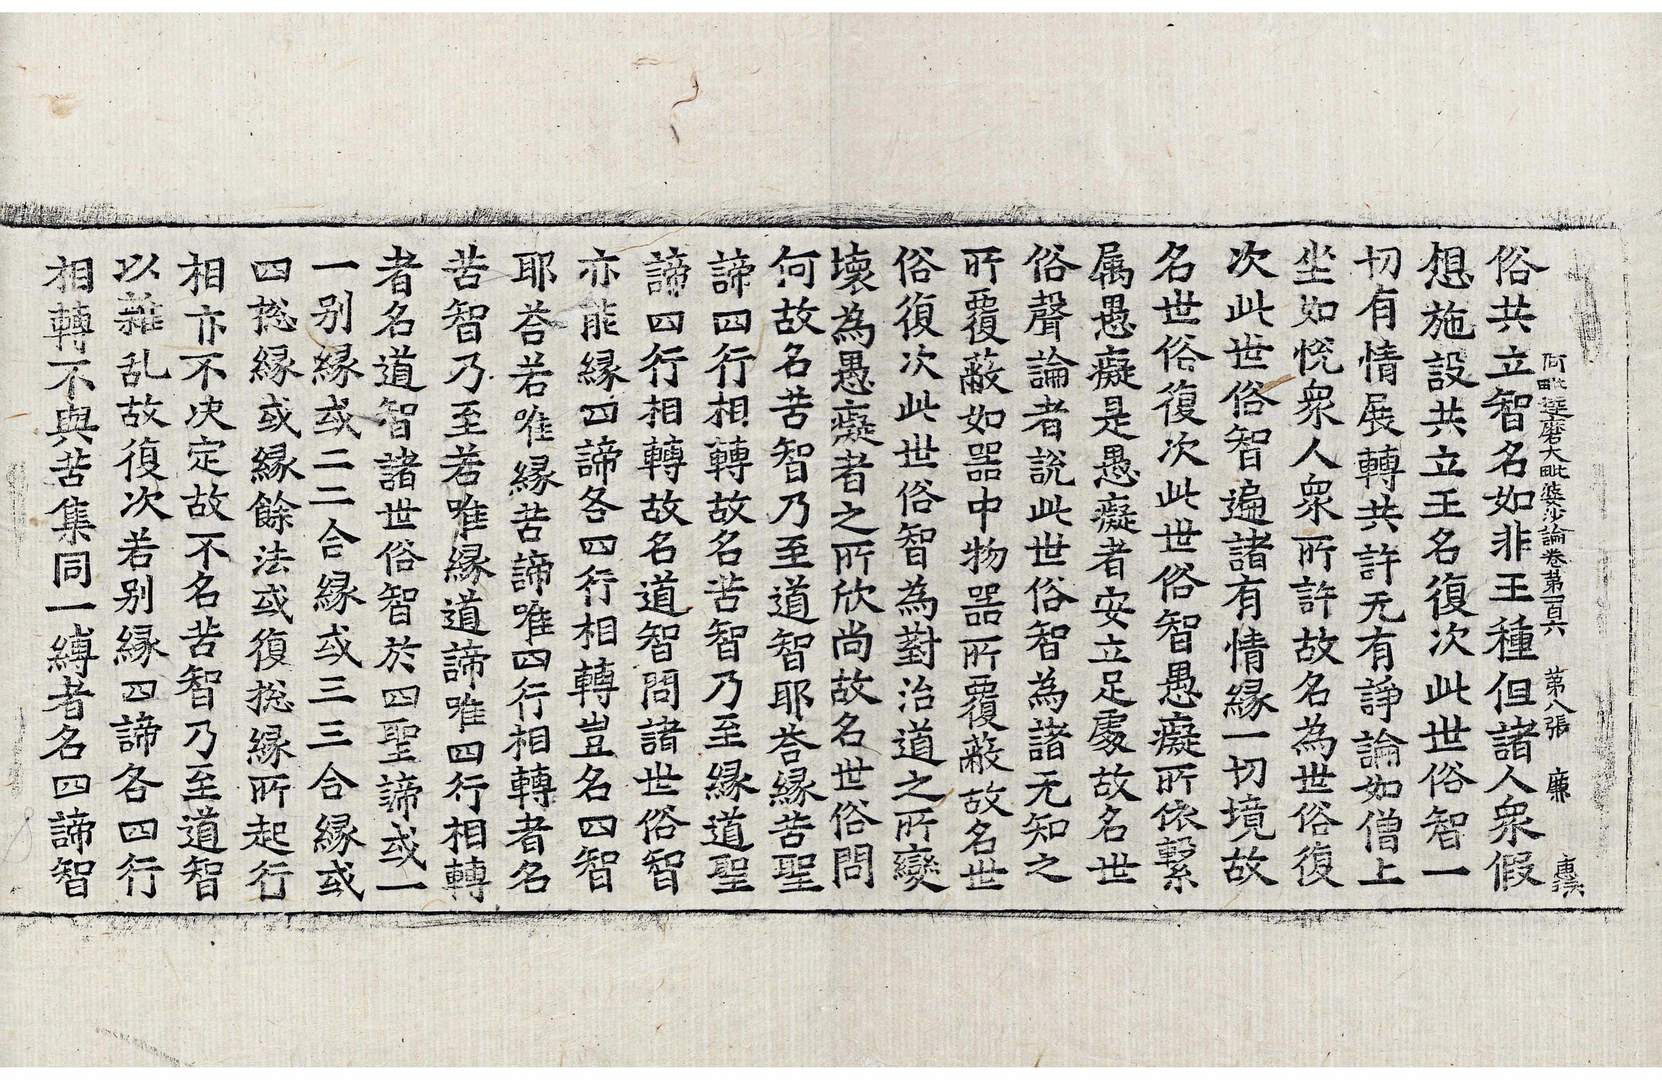 阿毗達磨大毗婆沙論卷第一百六 第八張 廉
俗共立智名如非王種但諸人衆假
想施設共立王名復次此世俗智一
切有情展轉共許无有諍論如僧上
坐如恱衆人衆所許故名為世俗復
次此世俗智遍諸有情緣一切境故
名世俗復次此世俗智愚癡所依繫
属愚癡是愚癡者安立足處故名世
俗聲論者說此世俗智為諸无知之
所覆蔽如器中物器所覆蔽故名世
俗復次此世俗智為對治道之所變
壞為愚癡者之所欣尚故名世俗問
何故名苦智乃至道智耶荅緣苦聖
諦四行相轉故名苦智乃至緣道聖
諦四行相轉故名道智問諸世俗智
亦能緣四諦各四行相轉豈名四智
耶荅若唯緣苦諦唯四行相轉者名
苦智乃至若唯緣道諦唯四行相轉
者名道智諸世俗智於四聖諦或一
一别緣或二二合緣或三三合緣或
四揔緣或緣餘法或復揔緣所起行
相亦不决定故不名苦智乃至道智
以雜乱故復次若别緣四諦各四行
相轉不與苦集同一縛者名四諦智